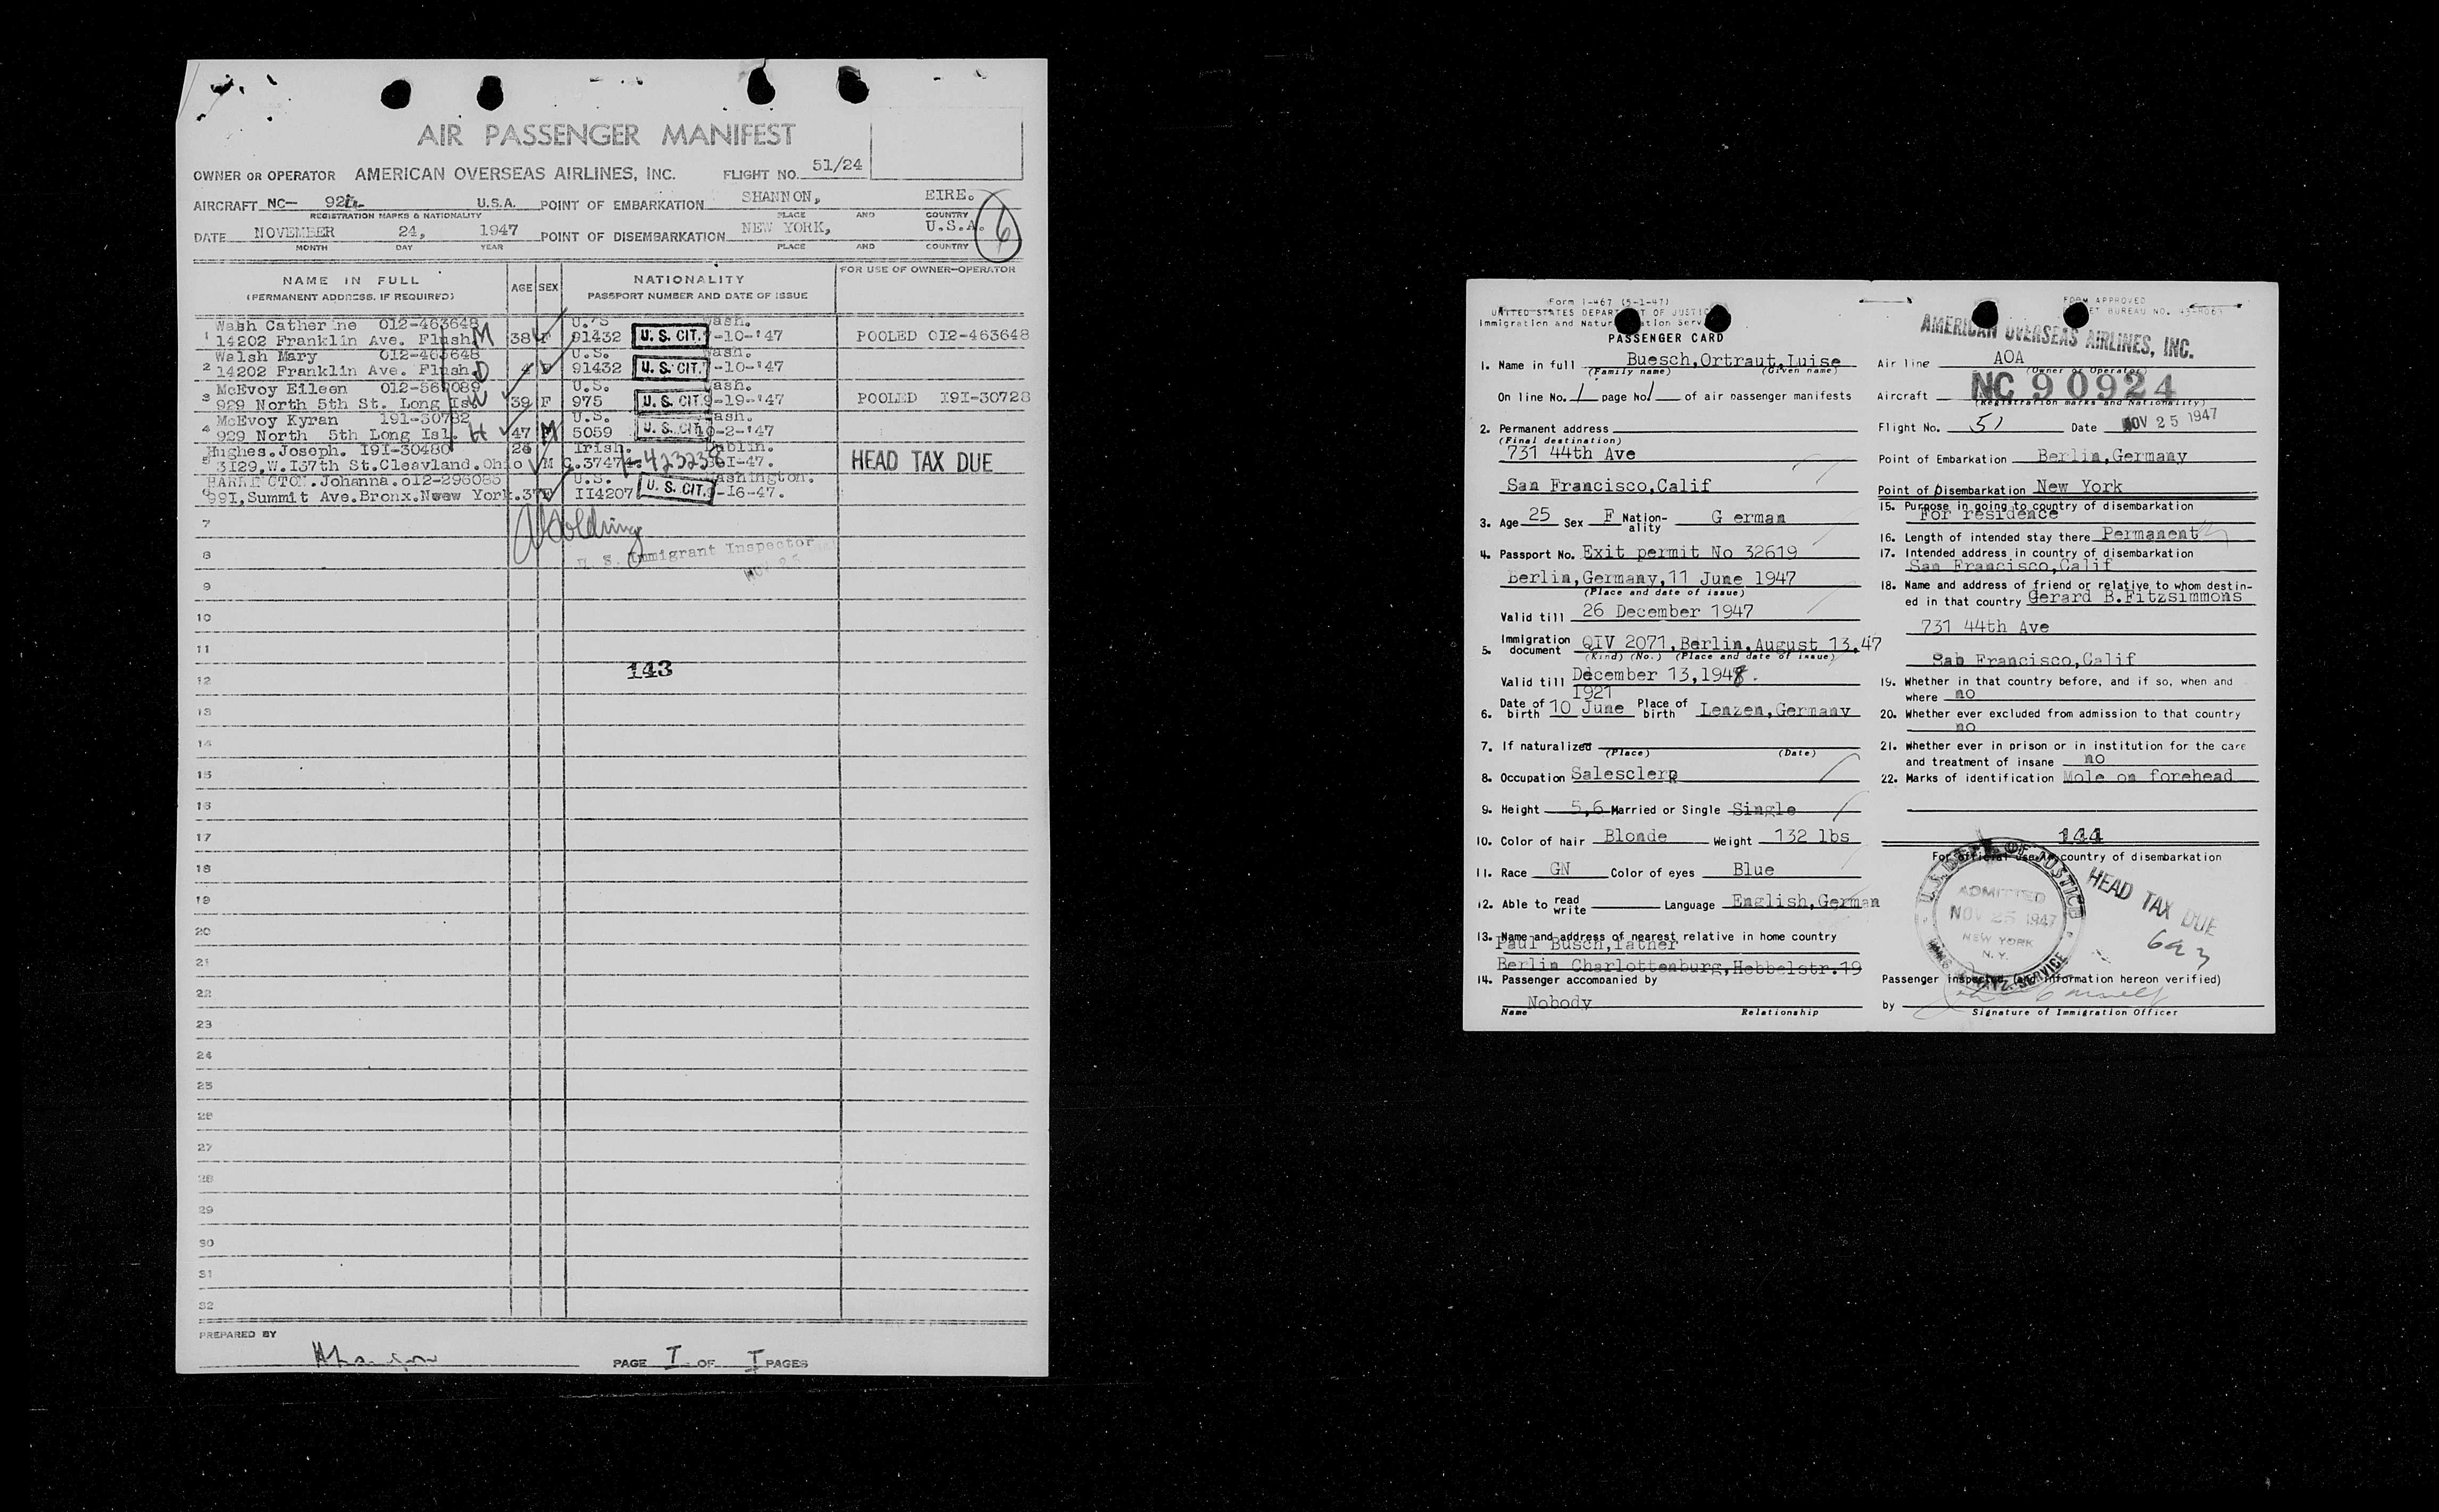 AIR PASSENGER MANIFEST
OWNER OR OPERATOR AMERICAN OVERSEAS AIRLINES, INC. FLIGHT NO. 51/24
AIRCRAFT NC— U.S.A. POINT OF EMBARKATION SHANNON, EIRE.
REGISTRATION MARKS & NATIONALITY PLACE AND COUNTRY
DATE NOVEMBER 24, 1947 POINT OF DISEMBARKATION NEW YORK, U.S.A.
MONTH DAY YEAR PLACE AND COUNTRY
6
NAME IN FULL AGE SEX NATIONALITY FOR USE OF OWNER-OPERATOR
(PERMANENT ADDRESS, IF REQUIRED) PASSPORT NUMBER AND DATE OF ISSUE
Walsh Catherine 012-463648 U.S Wash.
1 14202 Franklin Ave. Flush. M 38 F 91432 U. S. CIT. -10-'47 POOLED 012-463648
Walsh Mary 012-463648 U.S. Wash.
2 14202 Franklin Ave. Flush. D 4 F 91432 U. S. CIT. -10-'47
McEvoy Eileen 012-567089 U.S. Wash.
3 929 North 5th St. Long Is. W 39 F 975 U. S. CIT. 9-19-'47 POOLED I9I-30728
McEvoy Kyran 191-30782 U.S. Wash.
4 929 North 5th Long Isl. H 47 M 5059 U. S. CIT. -2-'47
Hughes.Joseph. I9I-30480 26 Irish. Dublin.
5 3I29,W.I37th St.Cleavland.Ohio M C.37474 423238 I-47. HEAD TAX DUE
HARRINGTON.Johanna.o12-296085 U.S. Washington.
6 99I,Summit Ave.Bronx.Nwew York.37 F II4207 U. S. CIT. -I6-47.
7
U. S. Immigrant Inspector
8
NOV 25
9
10
11
143
12
13
14
15
16
17
18
19
20
21
22
23
24
25
26
27
28
29
30
31
32
PREPARED BY
PAGE I OF I PAGES
Form I-467 (5-1-47)
UNITED STATES DEPARTMENT OF JUSTICE
Immigration and Naturalization Service
PASSENGER CARD
1. Name in full Buesch,Ortraut,Luise
(Family name) (Given name)
On line No. 1 page No. 1 of air passenger manifests
2. Permanent address
(Final destination)
731 44th Ave
San Francisco,Calif
3. Age 25 Sex F Nation-ality G erman
4. Passport No. Exit permit No 32619
Berlin,Germany,11 June 1947
(Place and date of issue)
Valid till 26 December 1947
5. Immigration document QIV 2071,Berlin,August 13,47
(Kind) (No.) (Place and date of issue)
Valid till December 13,1947.
1921
6. Date of birth 10 June Place of birth Lenzen,Germany
7. If naturalized
(Place) (Date)
8. Occupation Salesclerp
9. Height 5,6 Married or Single Single
10. Color of hair Blonde Weight 132 lbs
11. Race GN Color of eyes Blue
12. Able to read write Language English,German
13. Name and address of nearest relative in home country
Paul Busch,father
Berlin Charlottenburg,Hebbelstr.19
14. Passenger accompanied by
Nobody
Name Relationship
FORM APPROVED
BUDGET BUREAU NO. 43-R063
AMERICAN OVERSEAS AIRLINES, INC.
Air line AOA
(Owner or Operator)
Aircraft NC 90924
(Registration marks and Nationality)
Flight No. 51 Date NOV 25 1947
Point of Embarkation Berlin,Germany
Point of Disembarkation New York
15. Purpose in going to country of disembarkation
For residence
16. Length of intended stay there Permanent
17. Intended address in country of disembarkation
San Francisco,Calif
18. Name and address of friend or relative to whom destin-
ed in that country Gerard B.Fitzsimmons
731 44th Ave
Sab Francisco,Calif
19. Whether in that country before, and if so, when and
where no
20. Whether ever excluded from admission to that country
no
21. Whether ever in prison or in institution for the care
and treatment of insane no
22. Marks of identification Mole on forehead
144
For official use in country of disembarkation
U.S. DEPT. OF JUSTICE
ADMITTED
NOV 25 1947
NEW YORK
N. Y.
SERVICE
HEAD TAX DUE
Passenger inspected (and information hereon verified)
by
Signature of Immigration Officer